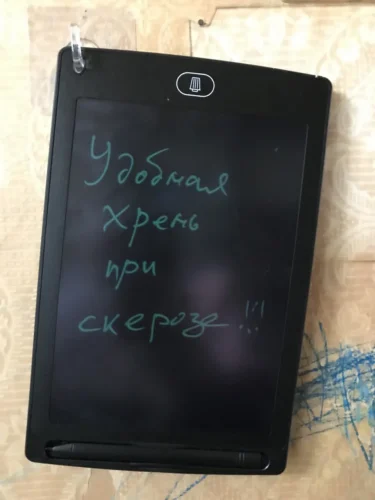 Удобная
хрень
при
скерозе!!!